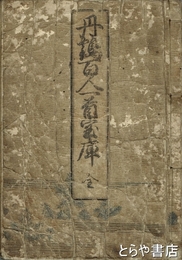 丹鶴百人一首宝庫 全
とらや書店